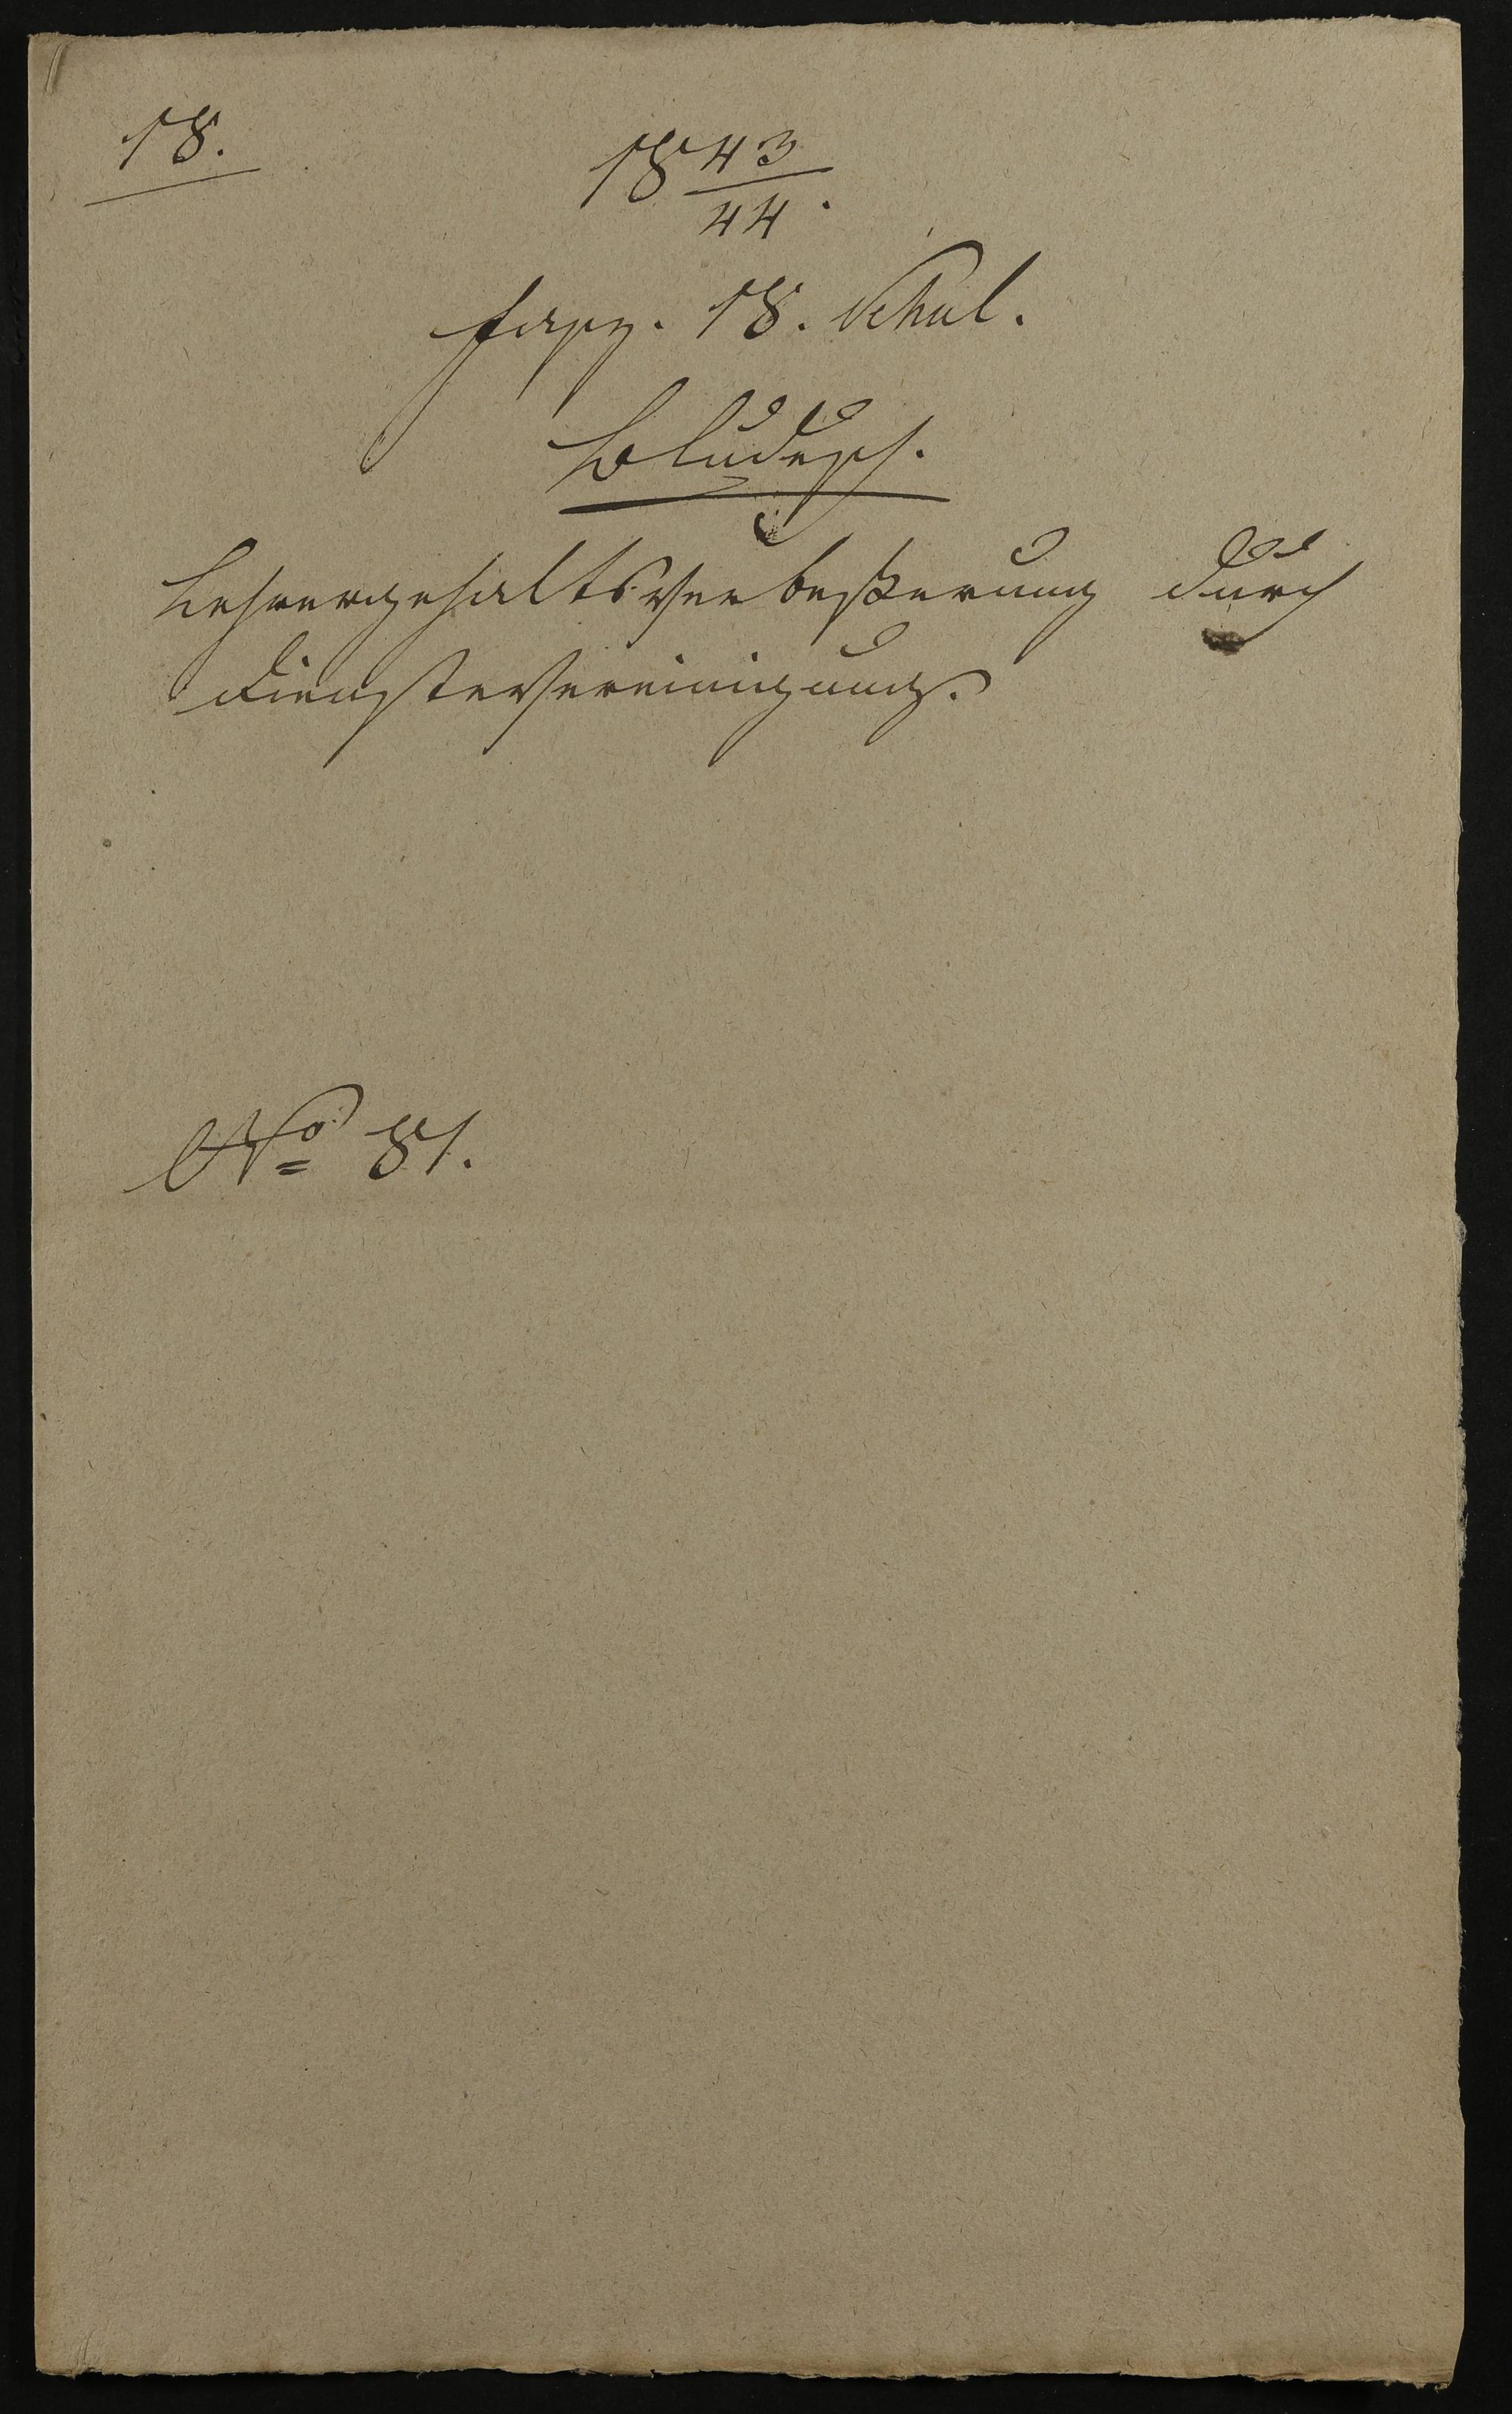 18.
18 43/44.
Fasz. 18. Schul.
Bludesch.
Lehrergehaltsverbeßerung durch
Dienstevereinigung.
No 81.